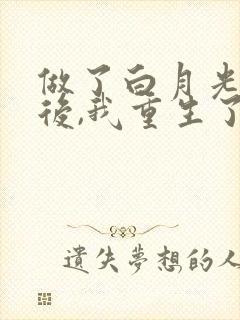 做了白月光
後,我重生了
遺失夢想的人